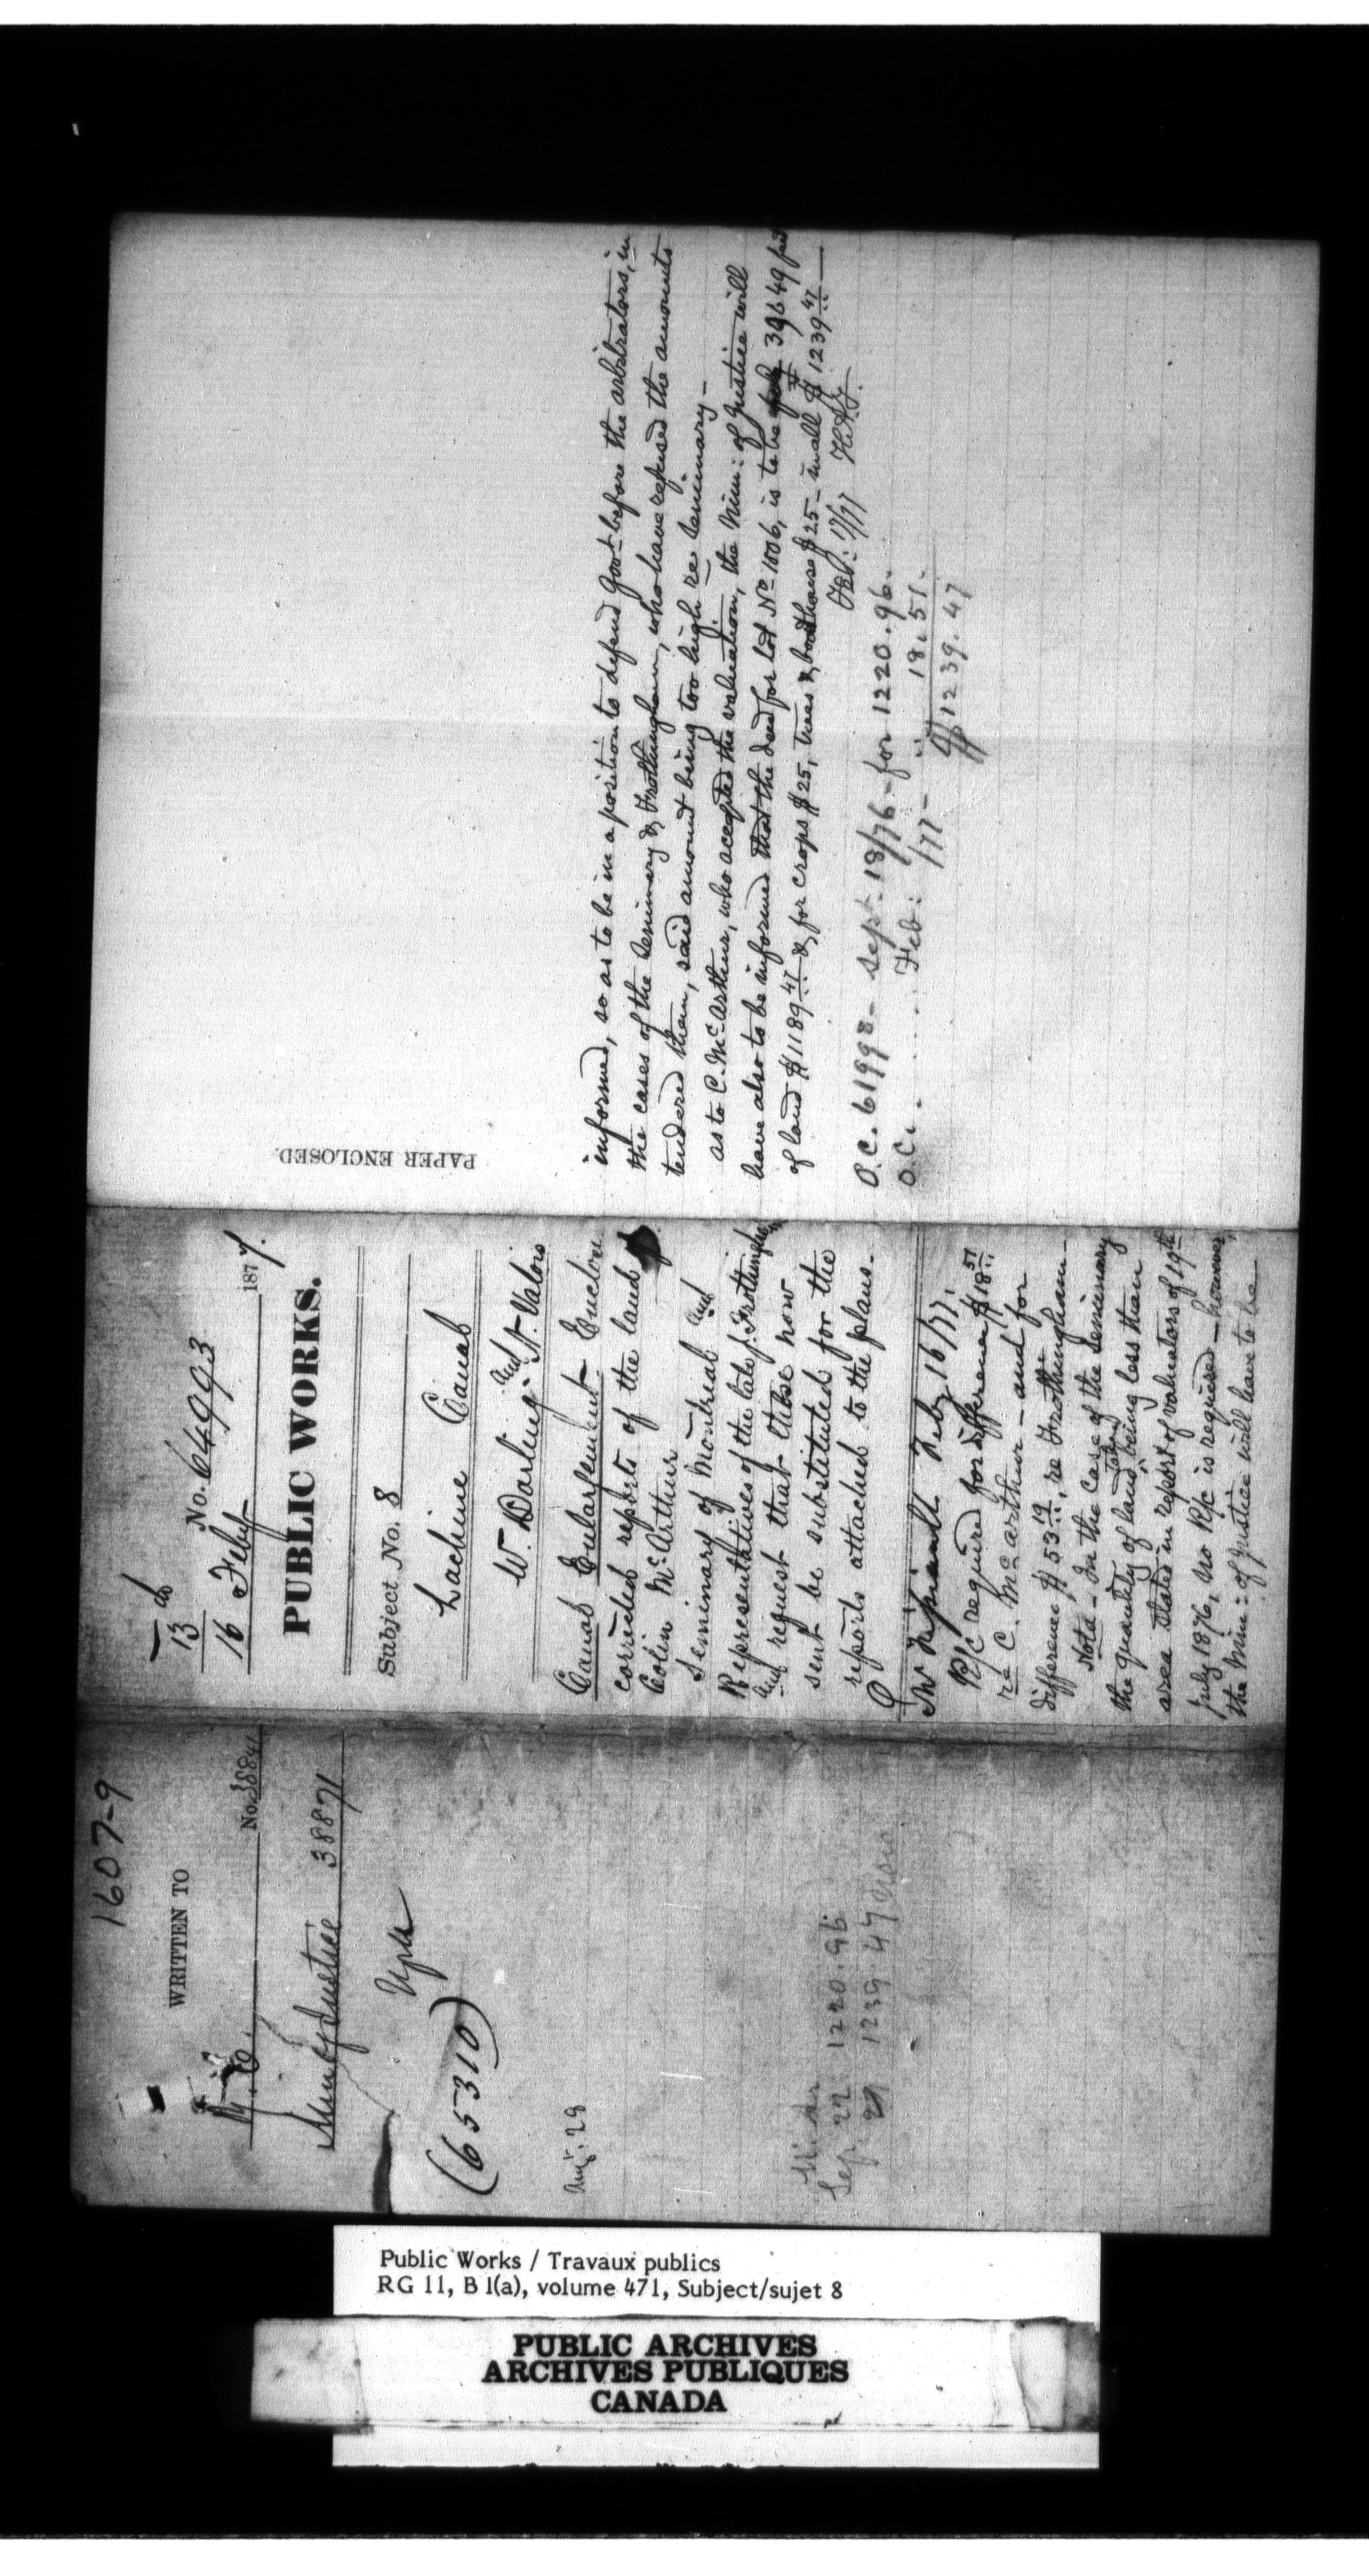 1607-9
WRITTEN TO
No. 38841
Min of Justice 38871
(65310)
Aug. 28
Sep. 22 1220.96
29 1239.47
13
No. 64993
16 Feby 1877.
PUBLIC WORKS.
Subject No. 8
Lachine Canal
W. Darling and St. Valois
Canal Enlargement Enclose
corrected reports of the land of
Colin McArthur
Seminary of Montreal and
Representatives of the late J. Frothingham
and request that these now
sent be substituted for the
reports attached to the plans.
Feby 16/77.
R/C required for difference $18.51
re C. McArthur - and for
difference $53.19, re Frothingham -
Note - In the case of the Seminary
the quantity of land taken being less than
area stated in report of valuators of 19th
July 1876, no R/c is required - however,
the Min: of Justice will have to be
PAPER ENCLOSED.
informed, so as to be in a position to defend Govt before the arbitrators, in
the cases of the Seminary & Frothingham, who have refused the amounts
tendered them, said amount being too high re Seminary -
as to C. McArthur, who accepted the valuation, the Min: of Justice will
have also to be informed that the deed for lot No 1006, is to be for 39649 feet
of land $1189.47 & for crops $25, trees & boathouse $25 - in all $1239.47
Feb: 17/77
O.C. 61998 - Sept. 18/76 - for 1220.96.
O.C. . . . . . Feb: /77 - " 18.51.
$1239.47
Public Works / Travaux publics
RG 11, B 1(a), volume 471, Subject/sujet 8
PUBLIC ARCHIVES
ARCHIVES PUBLIQUES
CANADA